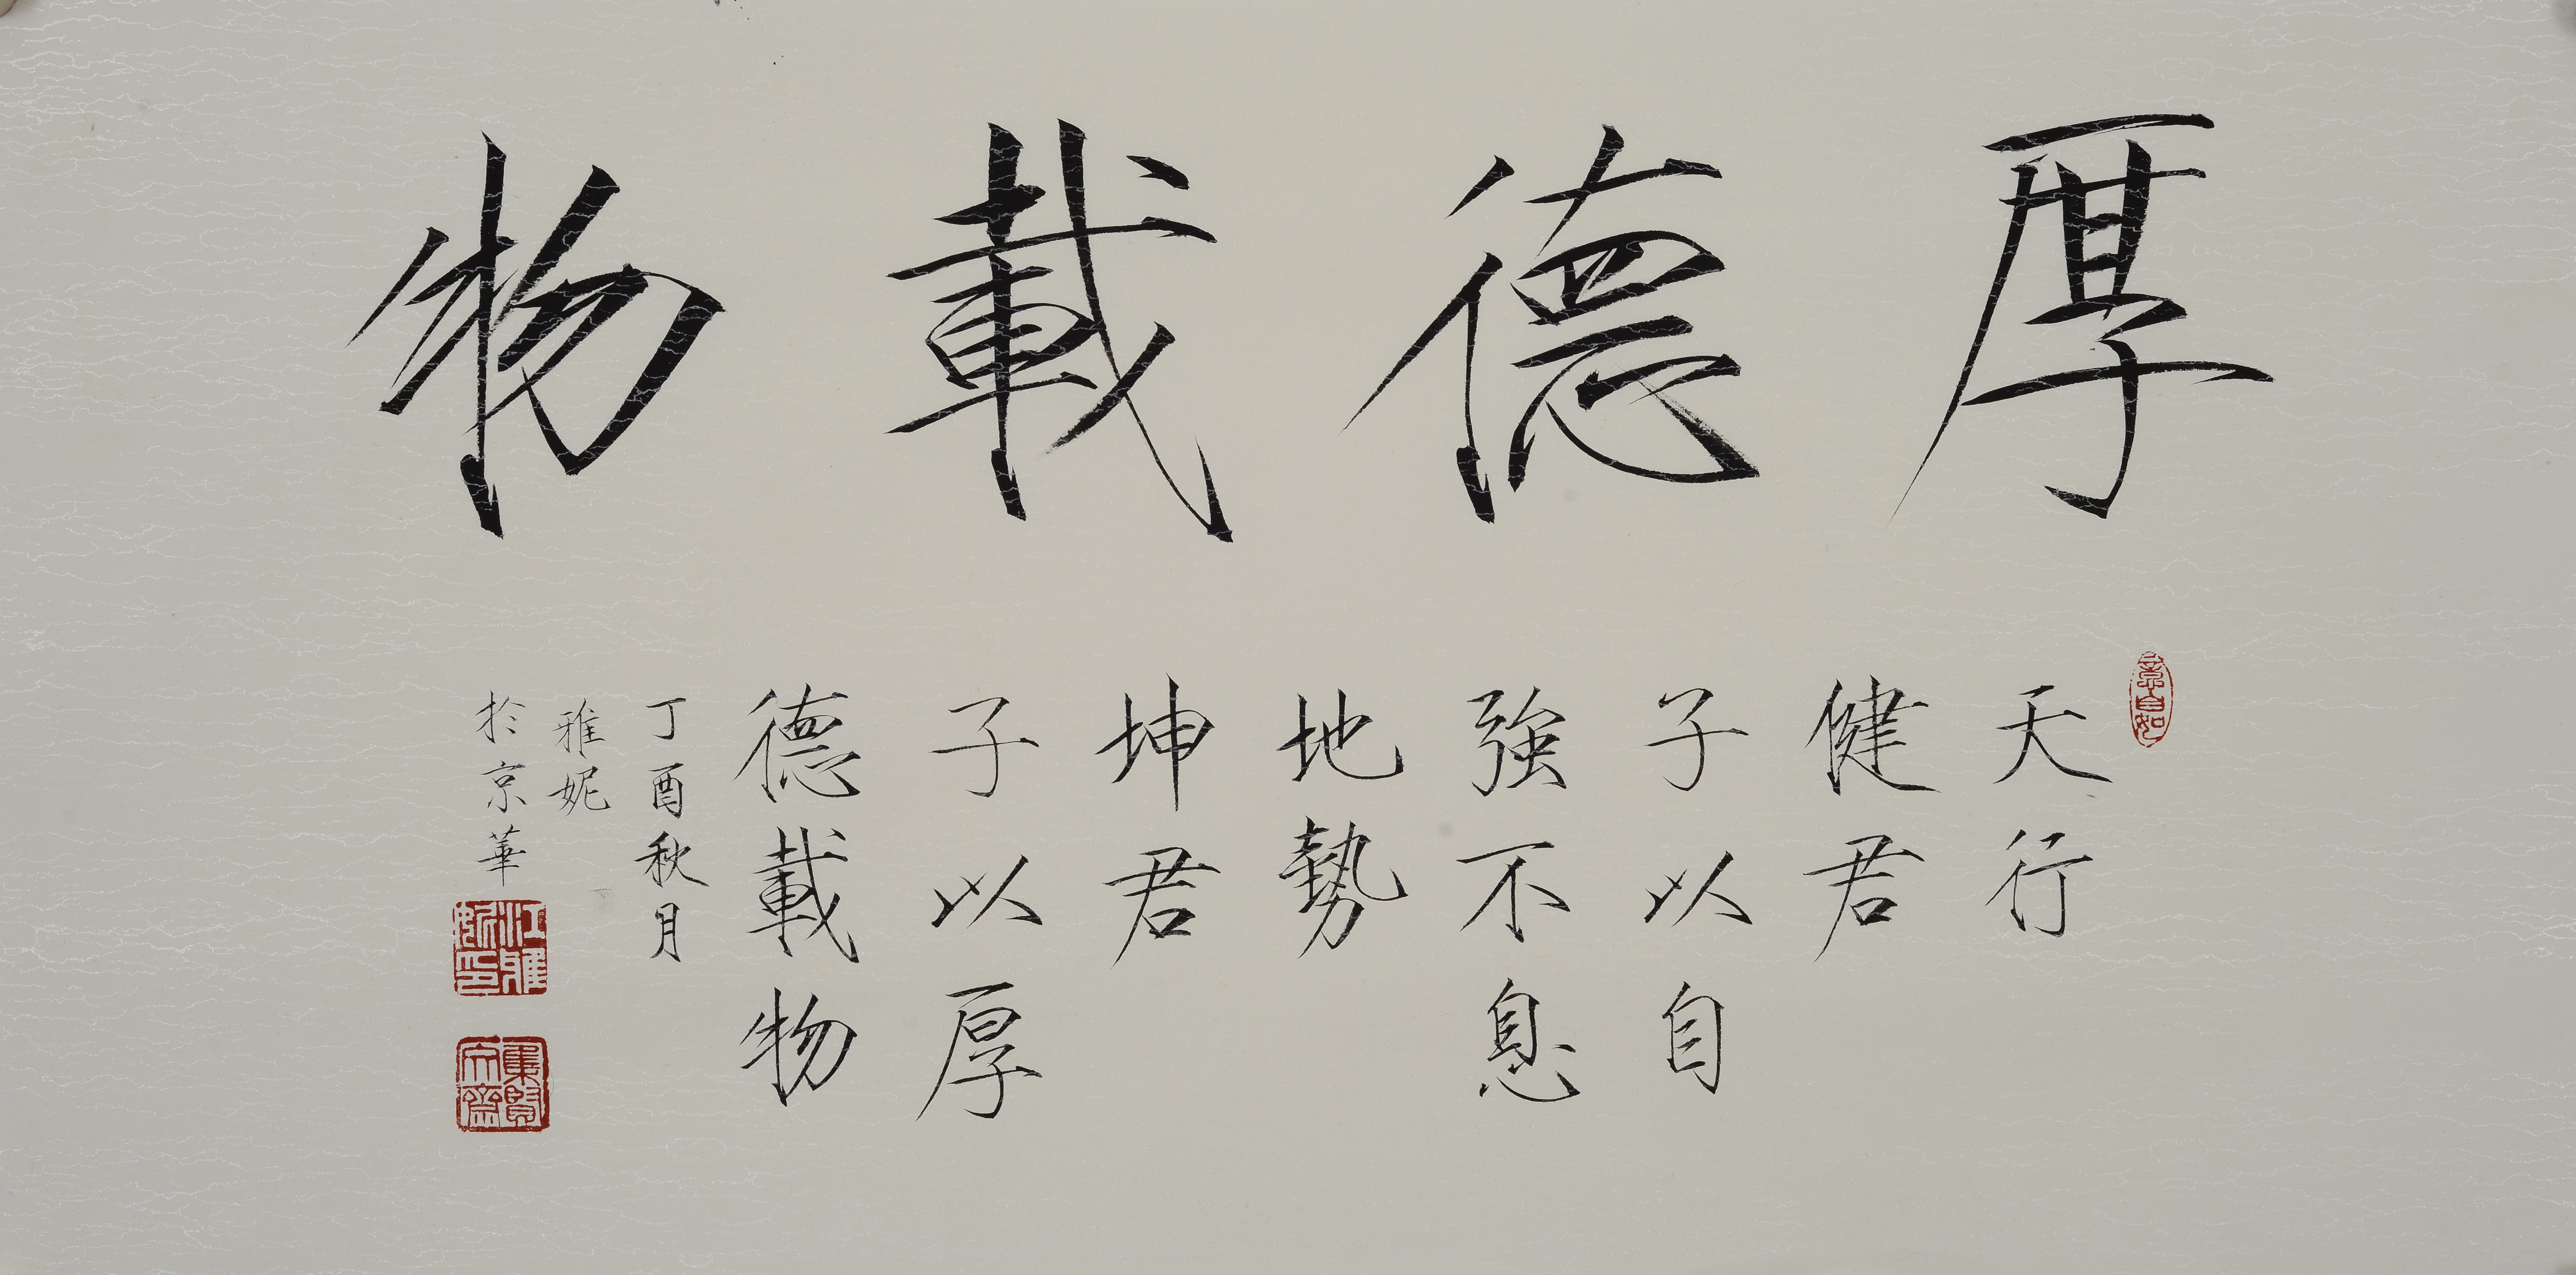 厚德載物
天行
健君
子以自
強不息
地勢
坤君
子以厚
德載物
丁酉秋月
雅妮
於京華
意自如
集賢文齋